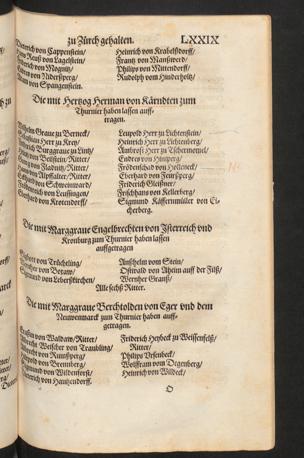 zu Zürch gehalten. LXXIX
Dieterich von Cappenstein/ Heinrich von Krabelßdorff/
Reuß von Lagelstein/ Frantz von Mansswerd/
von Mognitz/ Philips von Mittendorff/
von Niderßperg/ Rudolph von Hinderholtz/
von Spangenstein.
Die mit Hertzog Herman von Kärndten zum
Thurnier haben lassen auff-
tragen.
Wilhelm Graue zu Berneck/ Leupold Herr zu Lichtenstein/
Herr zu Krey/ Heinrich Herr zu Lichtenberg/
Burggraue zu Lintz/ Ambroß Herr zu Tschernomel/
von Beilstein/Ritter/ Endres von Himperg/
von Stadnitz/Ritter/ Frödenschad von Holleneck/
von Alpffalter/Ritter/ Eberhard von Feiustperg/
von Schweinward/ Friderich Gleißner/
von Leussinger/ Frischhans von Kellerberg/
von Krotendorff/ Sigmund Käffernmüler von Ei-
cherberg.
Die mit Marggraue Engelbrechten von Isterreich vnd
Kronburg zum Thurnier haben lassen
auffgetragen
von Trücheling/ Anßhelm von Stein/
von Botzaw/ Oßwald von Atzeim auff der Filß/
von Leberskirchen/ Wernher Grans/
Alle sechß Ritter.
Die mit Marggraue Berchtolden von Eger vnd dem
Neuwenmarck zum Thurnier haben auff-
getragen.
von Waldaw/Ritter/ Friderich Heybeck zu Weissenfelß/
von Traubling/ Ritter/
von Rumßperg/ Philips Vesenbeck/
von Brennberg/ Wolffram von Degenberg/
von Wildenforst/ Heinrich von Wildeck/
von Hautzendorff/
O